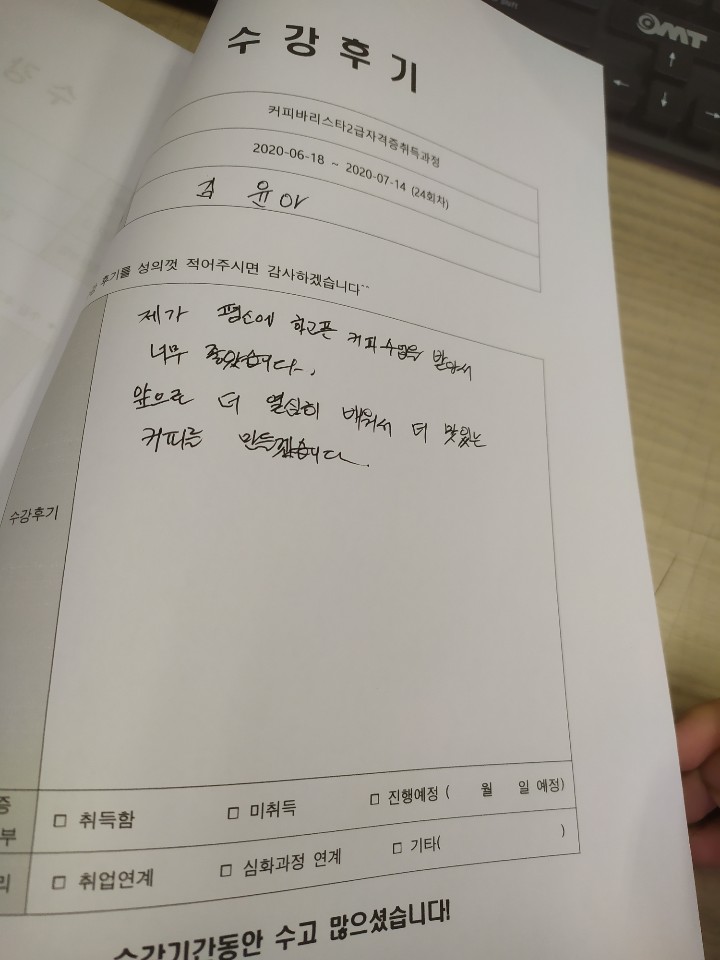 OMT
수 강 후 기
커피바리스타2급자격증취득과정
2020-06-18 ~ 2020-07-14 (24회차)
김 윤아
후기를 성의껏 적어주시면 감사하겠습니다^^
제가 평소에 하고픈 커피수업을 받아서
너무 좋았습니다.
앞으로 더 열심히 배워서 더 맛있는
커피를 만들겠습니다.
수강후기
증
부
□ 취득함 □ 미취득 □ 진행예정 ( 월 일 예정)
리
□ 취업연계 □ 심화과정 연계 □ 기타( )
수강기간동안 수고 많으셨습니다!